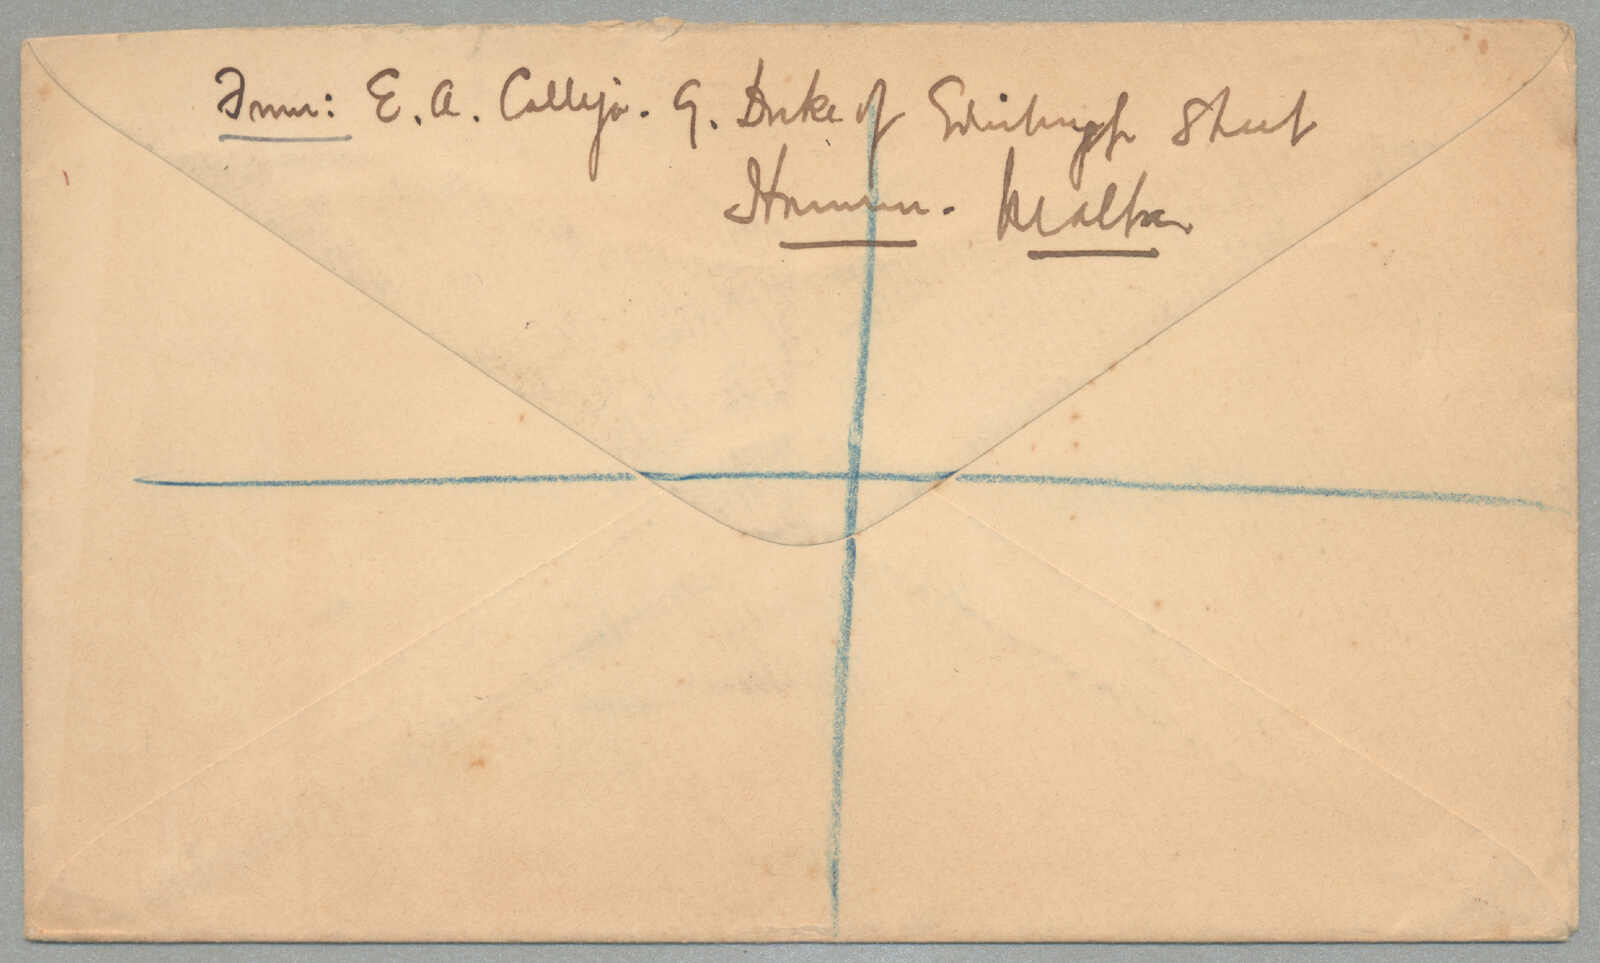 From: E. A. Calleja. 9. Duke of Edinburgh Street
Hamrun. Malta